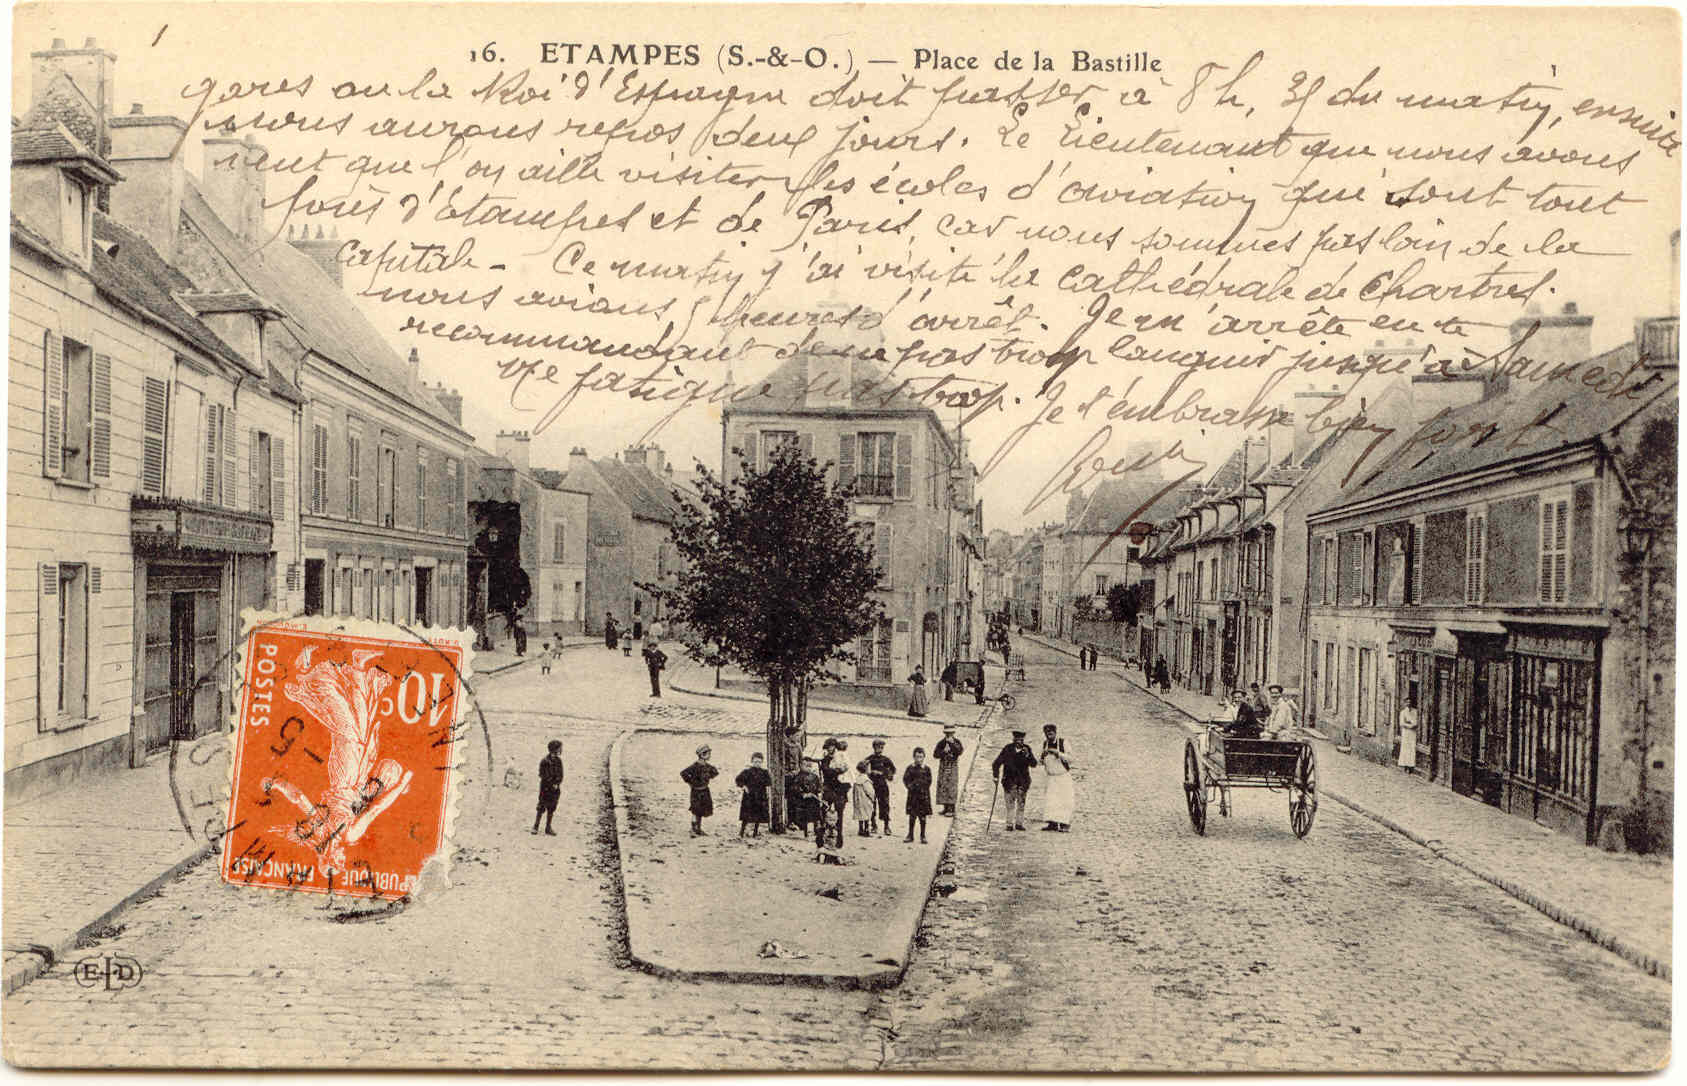 16. ETAMPES (S.-&-O.) — Place de la Bastille
gares ou le Roi d'Espagne doit passer à 8 h, 35 du matin, ensuite
nous aurons repos deux jours. Le Lieutenant que nous avons
veut que l'on aille visiter les écoles d'aviation qui sont tout
près d'Etampes et de Paris, car nous sommes pas loin de la
Capitale - Ce matin j'ai visité la Cathédrale de Chartres.
nous avions 5 heures d'arrêt. Je m'arrête en te
recommandant de ne pas trop languir jusqu'à Samedi
Ne fatigue pas trop. Je t'embrasse bien fort
10 c
POSTES
REPUBLIQUE FRANÇAISE
ELD